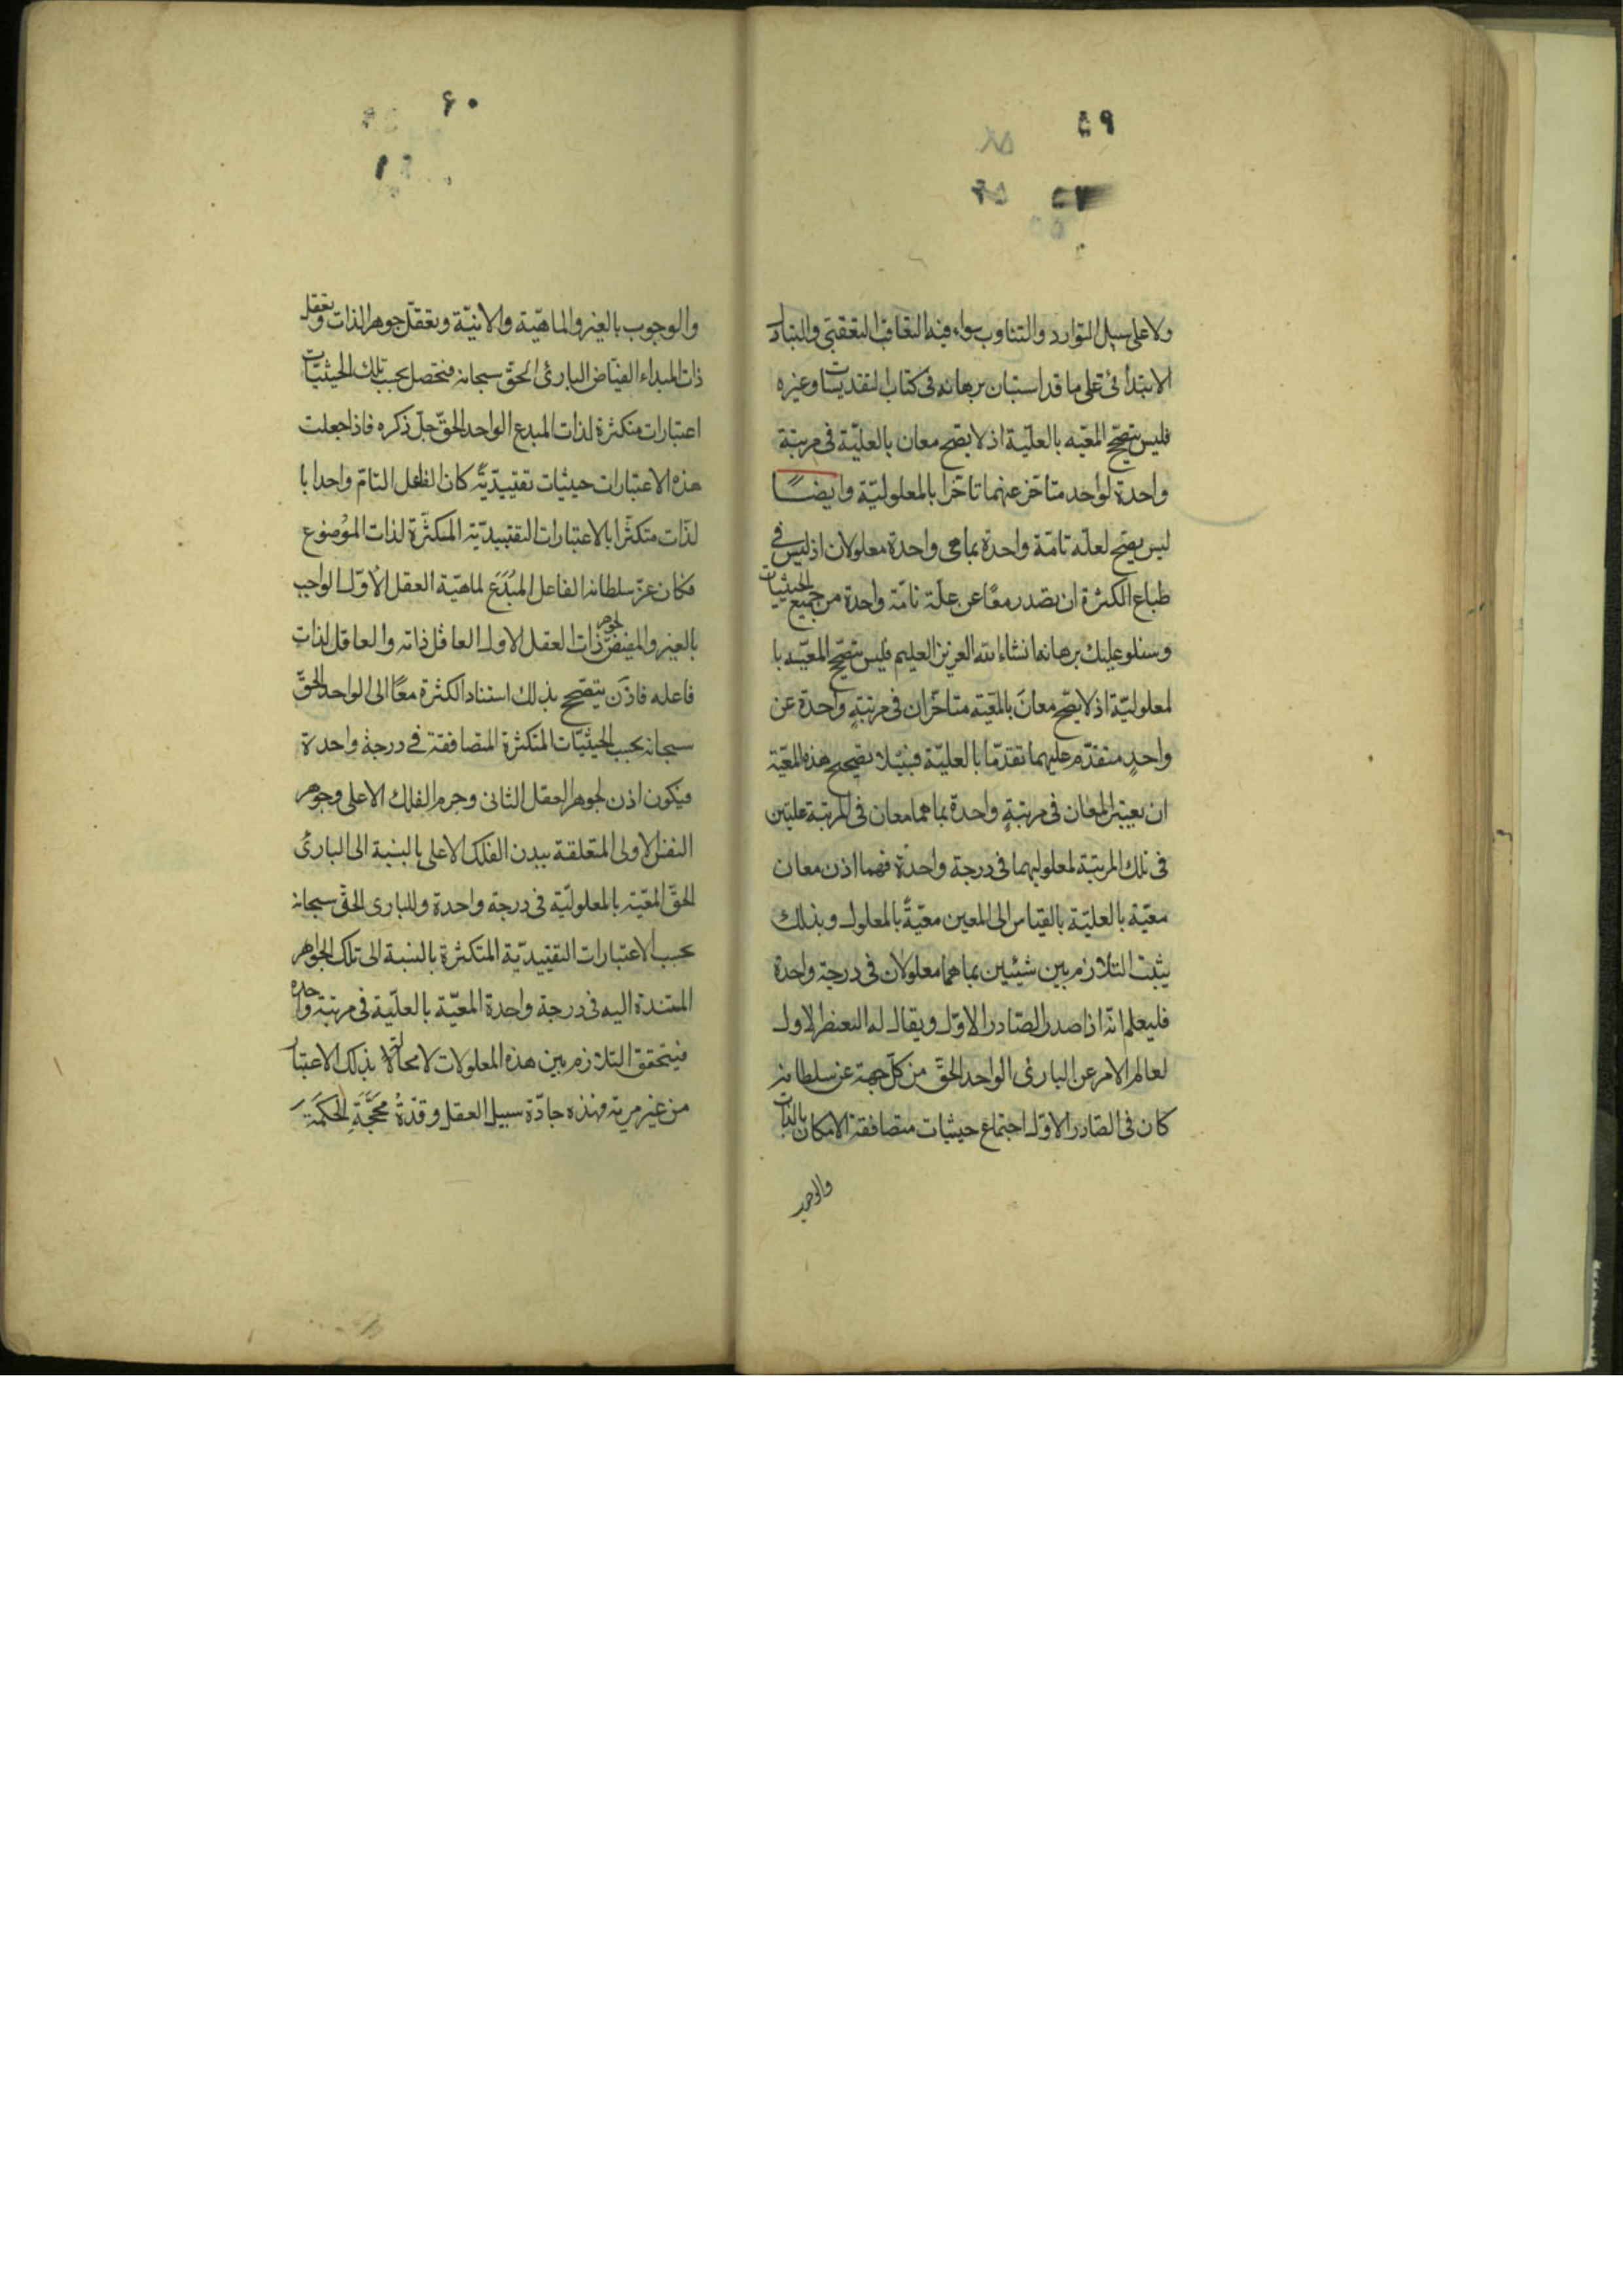 ٥٩
ولا على سبيل التوارد والتناوب سواء فيه التعاقب التعقبى والتبادل
الابتدائى على ما قد استبان برهانه فى كتاب التقديسات وغيره
فليس يتصحح المعيّه بالعليّة اذ لا يصح معان بالعليّة فى مرتبة
واحدة لواحد متاخر عنهما تاخرا بالمعلوليّة وايضًا
ليس يصح لعلّه تامّة واحدة بما هى واحدة معلولان اذ ليس فى
طباع الكثرة ان تصدر معًا عن علّة تامّة واحدة من جميع الحيثيات
وسنتلو عليك برهانها انشاء الله العزيز العليم فليس يتصحح المعيّه با
لمعلوليّة اذ لا يصح معان بالمعيّة متاخران فى مرتبةٍ واحدة عن
واحدٍ متقدّم عليهما تقدّما بالعليّة فبتلا تصحح هذه المعيّة
ان يعتبر المعان فى مرتبةٍ واحدة بما هما معان فى المرتبة علتين
فى تلك المرتبة لمعلوليهما فى درجة واحدة فهما اذن معان
معيّة بالعليّة بالقياس الى المعين معيّةً بالمعلول وبذلك
يثبت التلازم بين شيئين بما هما معلولان فى درجة واحدة
فليعلم انّه اذا صدر الصّادر الاوّل ويقال له العنصر الاول
لعالم الامر عن البارئ الواحد الحقّ من كلّ جهة عز سلطانه
كان فى الصّادر الاوّل اجتماع حيثيات متصافقة الامكان بالذات
والوجوب
٦٠
والوجوب بالغير والماهيّة والانيّة وتعقّل جوهر الذات وتعقل
ذات المبداء الفيّاض البارئ الحقّ سبحانه فتحصل بحسب تلك الحيثيّات
اعتبارات متكثرة لذات المبدع الواحد الحقّ جلّ ذكره فاذا جعلت
هذه الاعتبارات حيثيات تقييديّة كان الفاعل التامّ واحدا با
لذّات متكثّرا بالاعتبارات التقييديّة المتكثّرة لذات الموضوع
فكان عزّ سلطانه الفاعل المبدَع لماهيّة العقل الاوّل الواجب
بالغير والمفيض لجوهر ذات العقل الاول العاقل ذاته والعاقل لذات
فاعله فاذن يتصحح بذلك استناد الكثرة معًا الى الواحد الحقّ
سبحانه بحسب الحيثيّات المتكثرة المتصافقة فى درجة واحدة
فيكون اذن لجوهر العقل الثانى وجرم الفلك الاعلى وجوهر
النفس الاولى المتعلقة ببدن الفلك الاعلى بالنسبة الى البارئ
الحقّ المعيّة بالمعلوليّة فى درجة واحدة وللبارى الحقّ سبحانه
بحسب الاعتبارات التقييديّة المتكثرة بالنسبة الى تلك الجواهر
المستندة اليه فى درجة واحدة المعيّة بالعليّة فى مرتبة واحدة
فيتحقق التلازم بين هذه المعلولات لا محالة بذلك الاعتبار
من غير مرية فهذه جادّة سبيل العقل وقذّةُ محجّةِ الحكمة